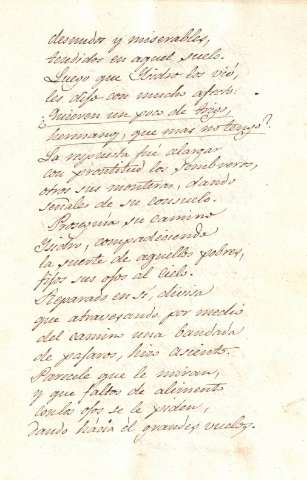 desnudos y miserables,
tendidos en aquel suelo.
Luego que Ysidro los vió,
les dijo con mucho afecto:
¿Quieren un poco de trigo,
hermanos, que mas no tengo?
La respuesta fué alargar
con prontitud los sombreros,
otros sus monteras, dando
señales de su consuelo.
Proseguia su camino
Ysidro, compadeciendo
la suerte de aquellos pobres,
fijos sus ojos al Cielo.
Reparado en sí, divisa
que atravesando por medio
del camino una bandada
de pajaros, hizo asiento.
Parecele que le miran,
y que faltos de alimento
con los ojos se le piden,
dando hácia él grandes vuelos.